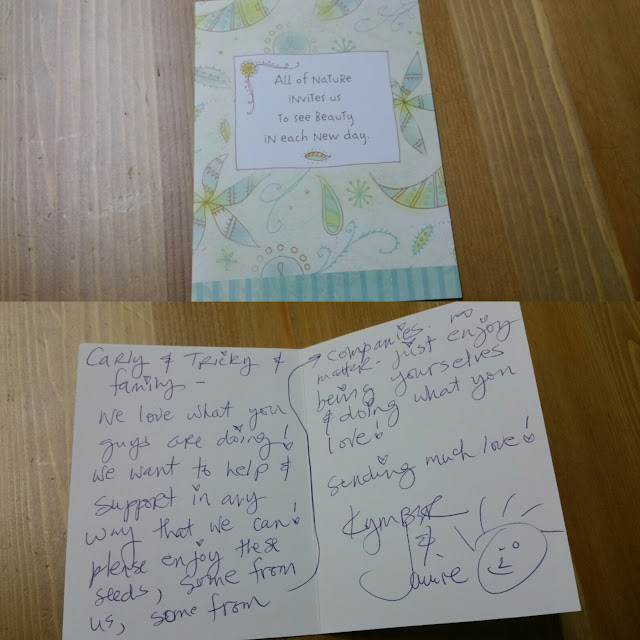 All of Nature
invites us
to see Beauty
in each New day.
Carly & Tricky &
family -
we love what you
guys are doing!
we want to help &
support in any
way that we can!
please enjoy these
seeds, some from
us, some from
companies. no
matter - just enjoy
being yourselves
& doing what you
love!
sending much love!
&